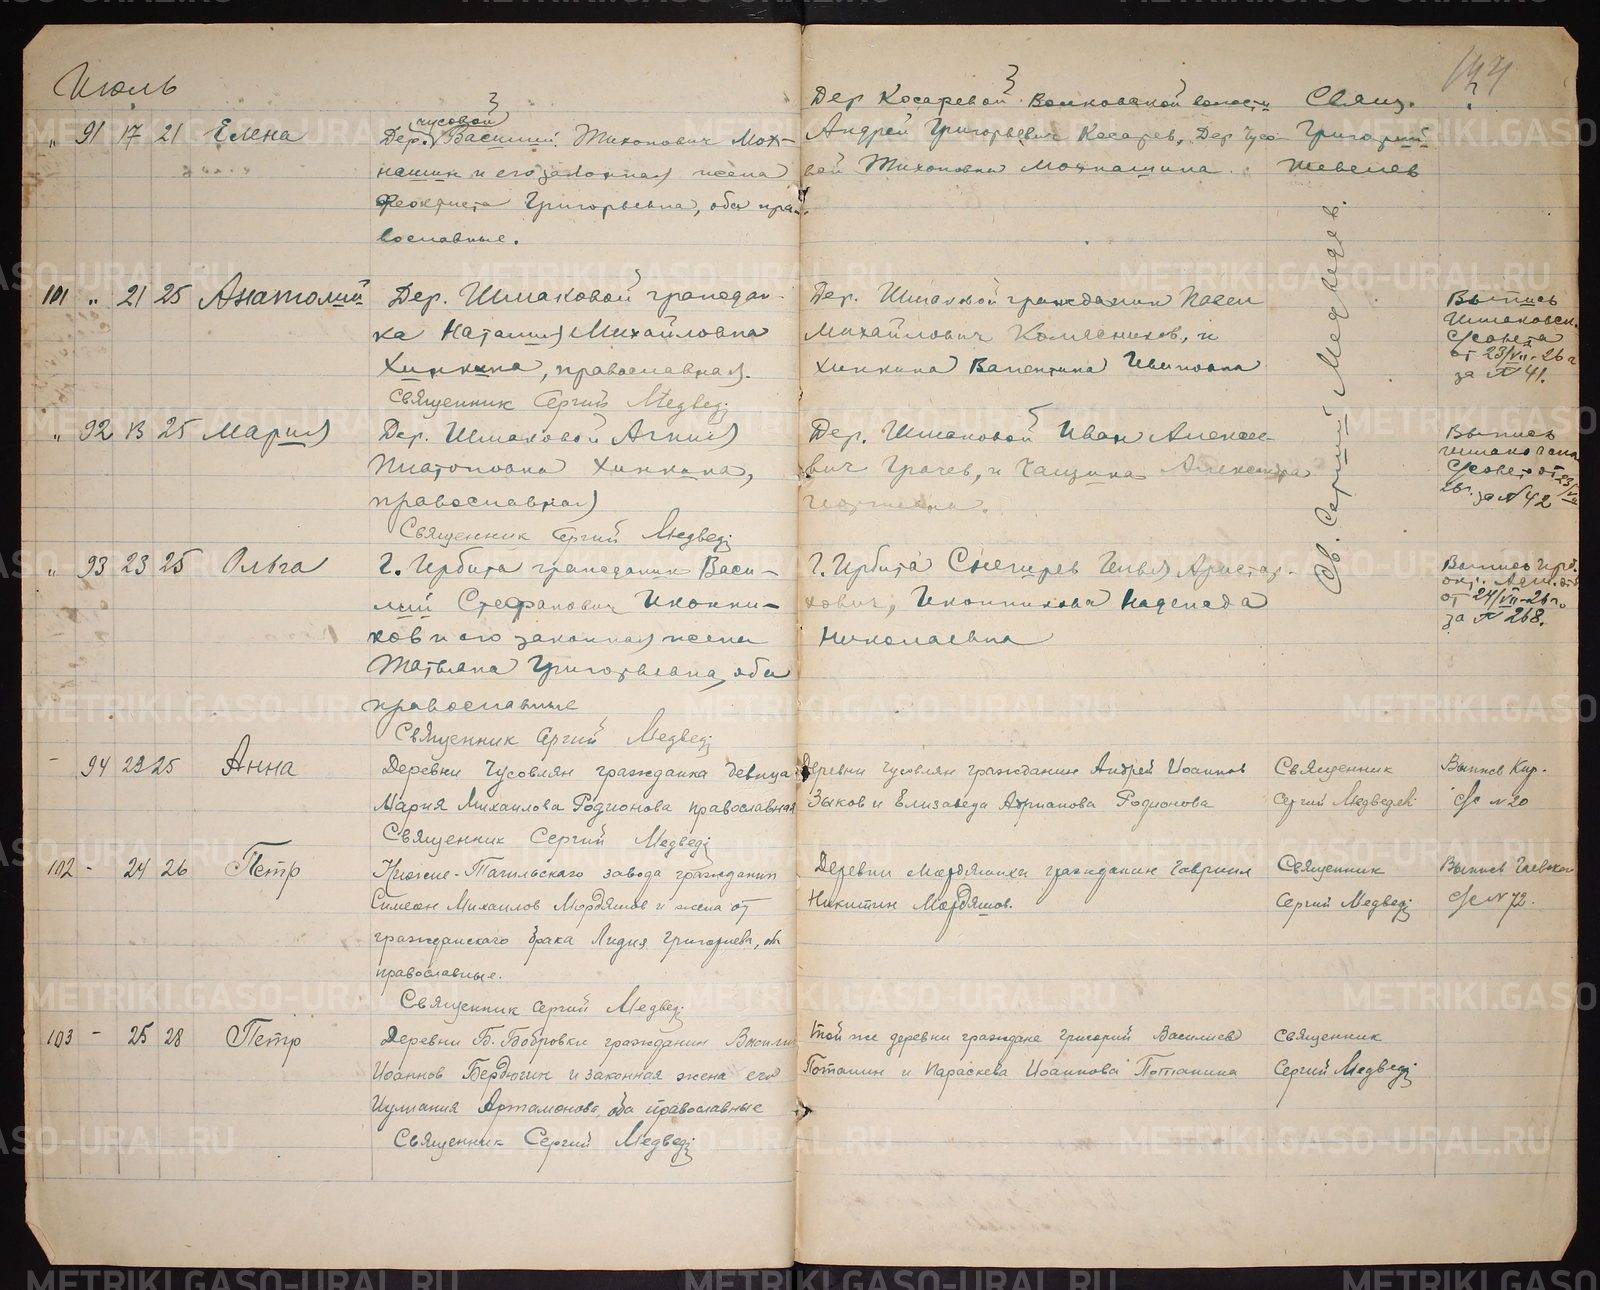 Июль
" 91 17 21 Елена
чусовой
Дер. Василий Тихонович Мох-
нашин и его законная жена
Феоктиста Григорьевна, оба пра-
вославные.
Дер. Косаревой Волковской волости
Андрей Григорьевич Косарев, Дер Чусо-
вой Тихоновна Мохнашина.
Свящ.
Григорий
Шевелев
101 " 21 25 Анатолий
Дер. Шмаковой граждан-
ка Наталия Михайловна
Хинкина, православная.
Священник Сергий Медведев
Дер. Шмаковой гражданин Павел
Михайлович Колесников, и
Хинкина Валентина Ивановна
Выпись
Шмаковск.
С/совета
от 23/VII-26 г
за № 41.
" 92 13 25 Мария
Дер. Шмаковой Агния
Платоновна Хинкина,
православная
Священник Сергий Медведев
Дер. Шмаковой Иван Алексее-
вич Грачев, и Чащина Александра
Выпись
Шмаковска
С/совета от 23/VII
26г. за № 42
" 93 23 25 Ольга
Г. Ирбита гражданин Васи-
лий Стефанович Иконни-
ков и его законная жена
Татьяна Григорьевна, оба
православные
Священник Сергий Медведев
Г. Ирбита Снегирев Илья Аристар-
хович, Иконникова Надежда
Николаевна
Св. Сергий Медведев.
Выпись Ирб.
окр. Адм. отд
от 24/VII-26г.
за № 268.
- 94 23 25 Анна
Деревни Чусовлян гражданка девица
Мария Михаилова Родионова православная
Священник Сергий Медведев
Деревни Чусовлян гражданин Андрей Иоаннов
Зыков и Елизавета Андрианова Родионова
Священник
Сергий Медведев
Выпись Кир.
с/с № 20
102 - 24 26 Петр
Нижне-Тагильскаго завода гражданин
Симеон Михаилов Мордяшов и жена от
гражданскаго брака Лидия Григориева, об
православные.
Священник Сергий Медведев
Деревни Мордяшихи гражданин Гавриил
Никитин Мордяшов.
Священник
Сергий Медведев
Выпись
С/с № 72.
103 - 25 28 Петр
Деревни Б. Бобровки гражданин Василий
Иоаннов Бердюгин и законная жена его
Иулиания Артамонова, оба православные
Священник Сергий Медведев
Той же деревни граждане Григорий Василиев
Потанин и Параскева Иоаннова Потанина
Священник
Сергий Медведев
METRIKI.GASO-URAL.RU